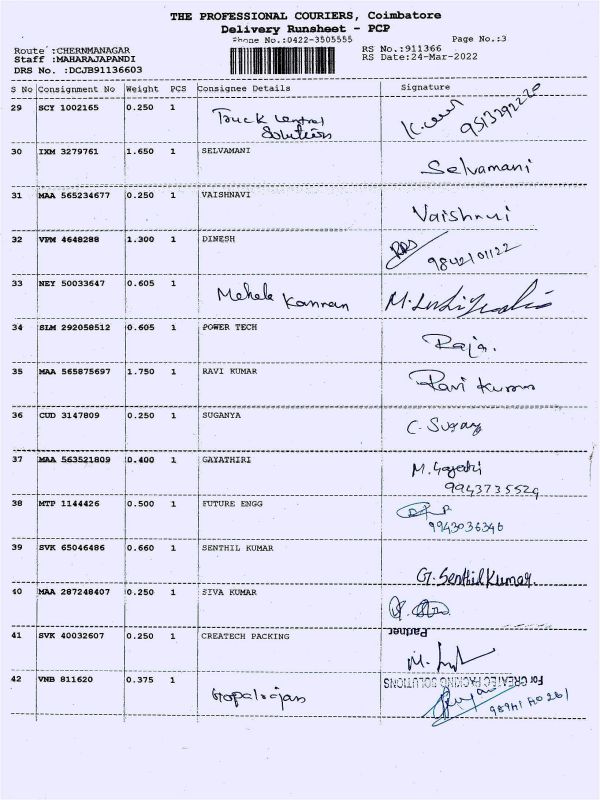 THE PROFESSIONAL COURIERS, Coimbatore
Delivery Runsheet - PCP
Phone No.:0422-3505555
Page No.:3
Route :CHERNMANAGAR
RS No.:911366
Staff :MAHARAJAPANDI
RS Date:24-Mar-2022
DRS No. :DCJB91136603
S No Consignment No Weight PCS Consignee Details Signature
29 SCY 1002165 0.250 1 Truck Central
Solutions
9513292220
30 IXM 3279761 1.650 1 SELVAMANI
Selvamani
31 MAA 565234677 0.250 1 VAISHNAVI
Vaishnavi
32 VPM 4648288 1.300 1 DINESH
9842101122
33 NEY 50033647 0.605 1 Mehala Kannan
34 SLM 292058512 0.605 1 POWER TECH
Raja.
35 MAA 565875697 1.750 1 RAVI KUMAR
Ravi Kumar
36 CUD 3147809 0.250 1 SUGANYA
C. Sugany
37 MAA 563521809 0.400 1 GAYATHIRI
M. Gayathri
9943735529
38 MTP 1144426 0.500 1 FUTURE ENGG
9943036346
39 SVK 65046486 0.660 1 SENTHIL KUMAR
G. Senthil Kumar.
40 MAA 287248407 0.250 1 SIVA KUMAR
Partner
41 SVK 40032607 0.250 1 CREATECH PACKING
For CREATEC PACKING SOLUTIONS
42 VNB 811620 0.375 1 Gopalrajan